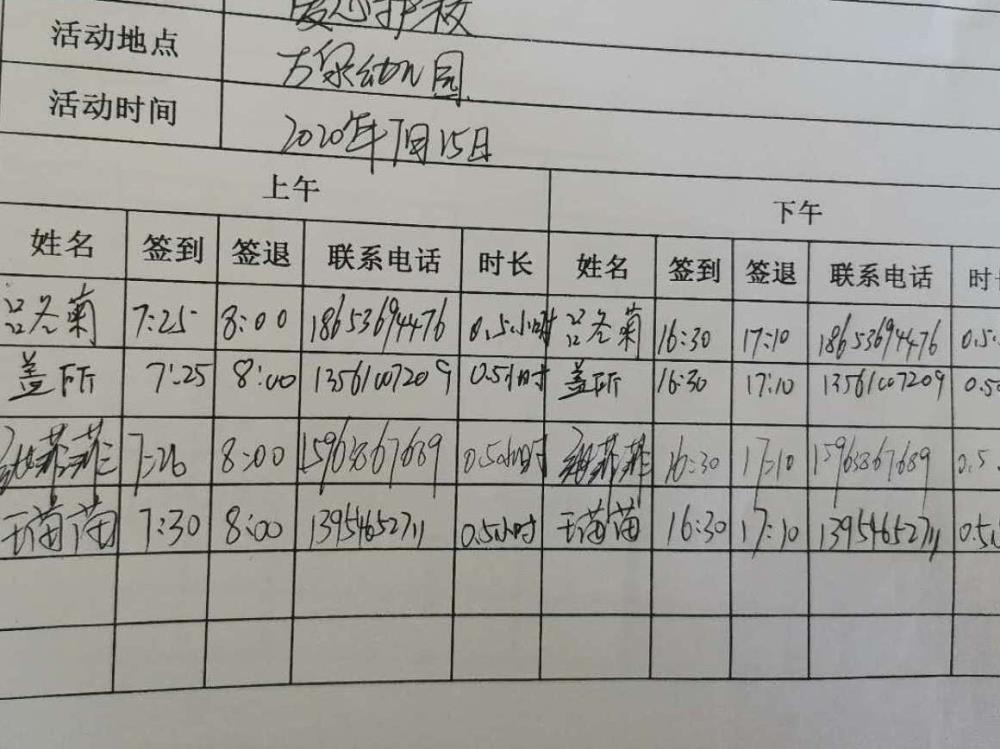 爱心护校
活动地点 古泉幼儿园
活动时间 2020年7月15日
上午 下午
姓名 签到 签退 联系电话 时长 姓名 签到 签退 联系电话 时长
冬菊 7:25 8:00 18653694476 0.5小时 冬菊 16:30 17:10 18653694476 0.5
盖所 7:25 8:00 13561007209 0.5小时 盖所 16:30 17:10 13561007209 0.5
菲菲 7:26 8:00 15963867689 0.5小时 菲菲 16:30 17:10 15963867689 0.5
王苗苗 7:30 8:00 13954652711 0.5小时 王苗苗 16:30 17:10 13954652711 0.5